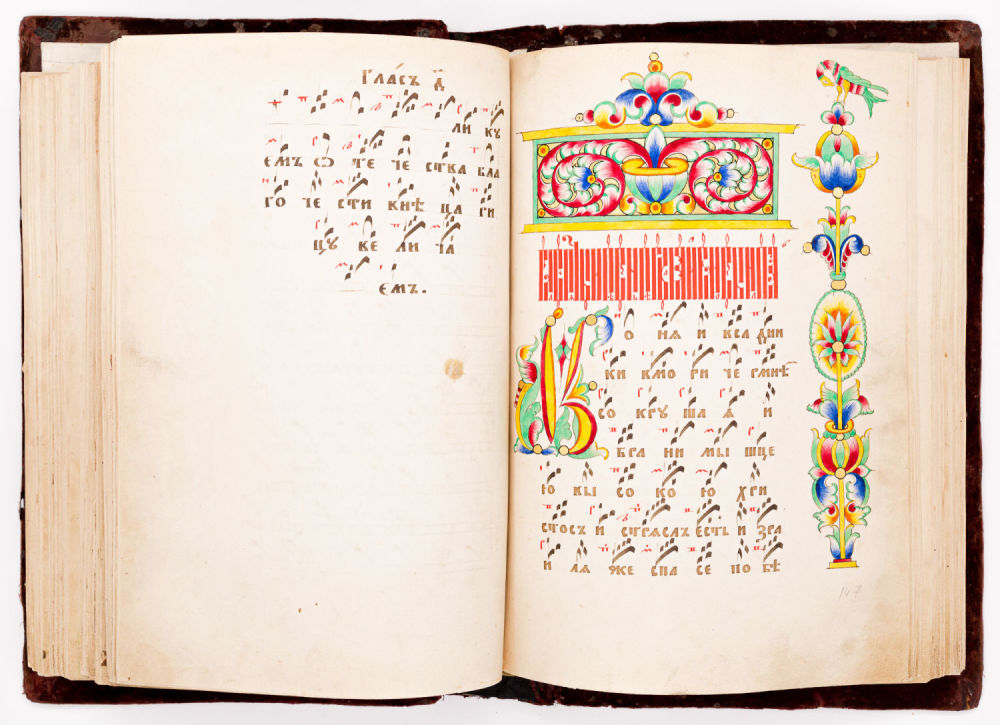 Гла́съ д҃
ли ку
емъ ѿ те че ства бла
го че сти внѣ ца ри
цу ве ли ча
емъ.
К о ня и вса дни
ки вмо ри че рмнѣ
со кру ша я и
бра ни мы шце
ю вы со ко ю хри
стосъ и стряслъ есть и зра
и ля же спа се по бѣ
147